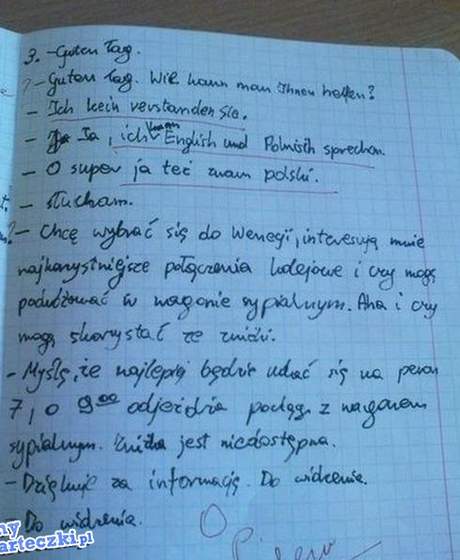 3. -Guten Tag.
?-Guten Tag. Wie kann man Ihnen helfen?
- Ich kein verstanden Sie.
- Ja, ich kann English und Polnisch sprechen.
- O super ja też znam polski.
- Słucham.
- Chcę wybrać się do Wenegi, interesują mnie
najkorzystniejsze połączenia kolejowe i czy mogę
podróżować w wagonie sypialnym. Aha i czy
mogę skorzystać ze zniżki.
- Myślę, że najlepiej będzie udać się na peron
7, o 9:00 odjeżdża pociąg z wagonem
sypialnym. Zniżka jest niedostępna.
- Dziękuję za informację. Do widzenia.
- Do widzenia.
O
ny
arteczki.pl